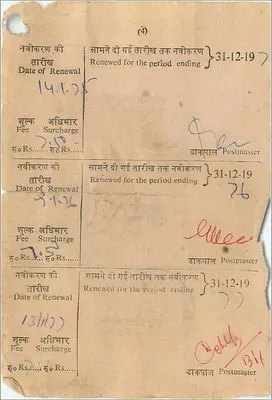 (4)
नवीकरण की सामने दी गई तारीख तक नवीकरण } 31-12-197
तारीख Renewed for the period ending
Date of Renewal
14.1.75
शुल्क अधिभार
Fee Surcharge
रु० Rs..... रु० Rs..... डाकपाल Postmaster
नवीकरण की सामने दी गई तारीख तक नवीकरण } 31-12-19
तारीख Renewed for the period ending 76
Date of Renewal
शुल्क अधिभार
Fee Surcharge
रु० Rs..... रु० Rs..... डाकपाल Postmaster
नवीकरण की सामने दी गई तारीख तक नवीकरण } 31-12-19
तारीख Renewed for the period ending 77
Date of Renewal
13/1/77
शुल्क अधिभार
Fee Surcharge
13/1
रु० Rs..... रु० Rs..... डाकपाल Postmaster